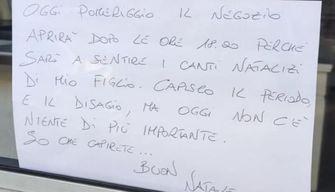 OGGI POMERIGGIO IL NEGOZIO
APRIRÀ DOPO LE ORE 18.00 PERCHÉ
SARÒ A SENTIRE I CANTI NATALIZI
DI MIO FIGLIO. CAPISCO IL PERIODO,
E IL DISAGIO, MA OGGI NON C'È
NIENTE DI PIÙ IMPORTANTE.
SO CHE CAPIRETE...
BUON
NATALE